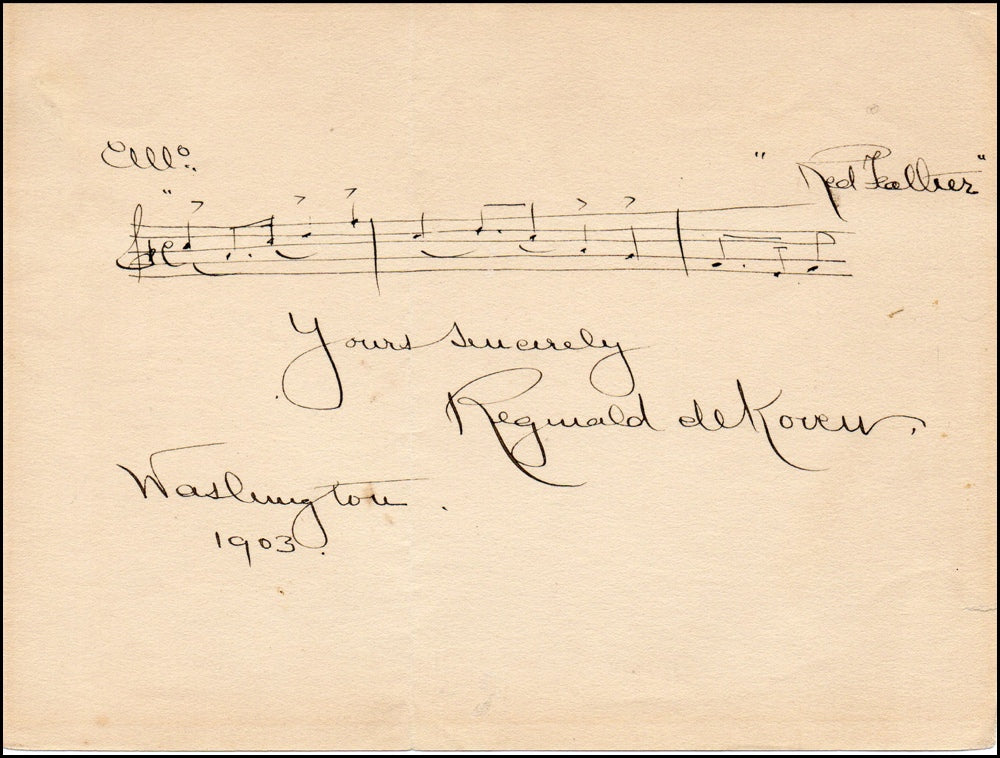 Allº.
"Red Feather"
Yours sincerely
Reginald de Koven.
Washington.
1903.